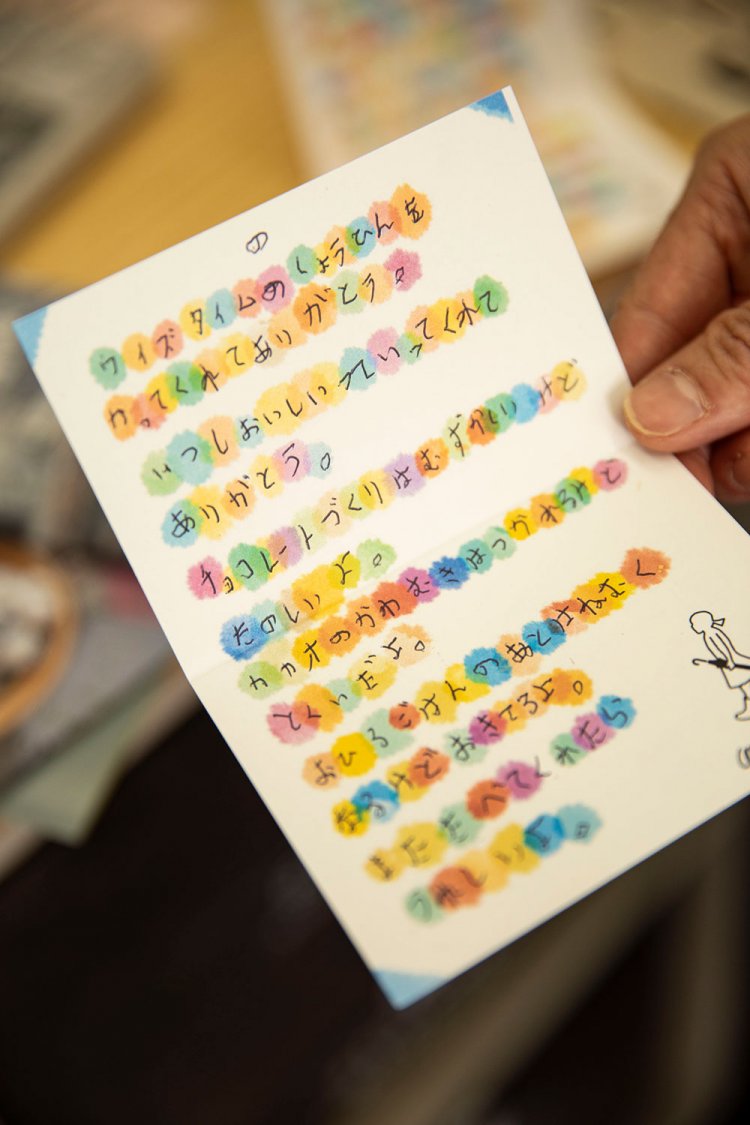 の
ワイズタイムのしょうひんを
カってくれてありがとう。
いつしおいしいっていってくれて
ありがとう。
チョコレートづくりはむずかしいけど
たのしいよ。
カカオのかわむきはつかれるけど
とくいだよ。
おひるごはんのあとはねむく
なるけどおきてるよ。
またたべてくれたら
うれしいよ。